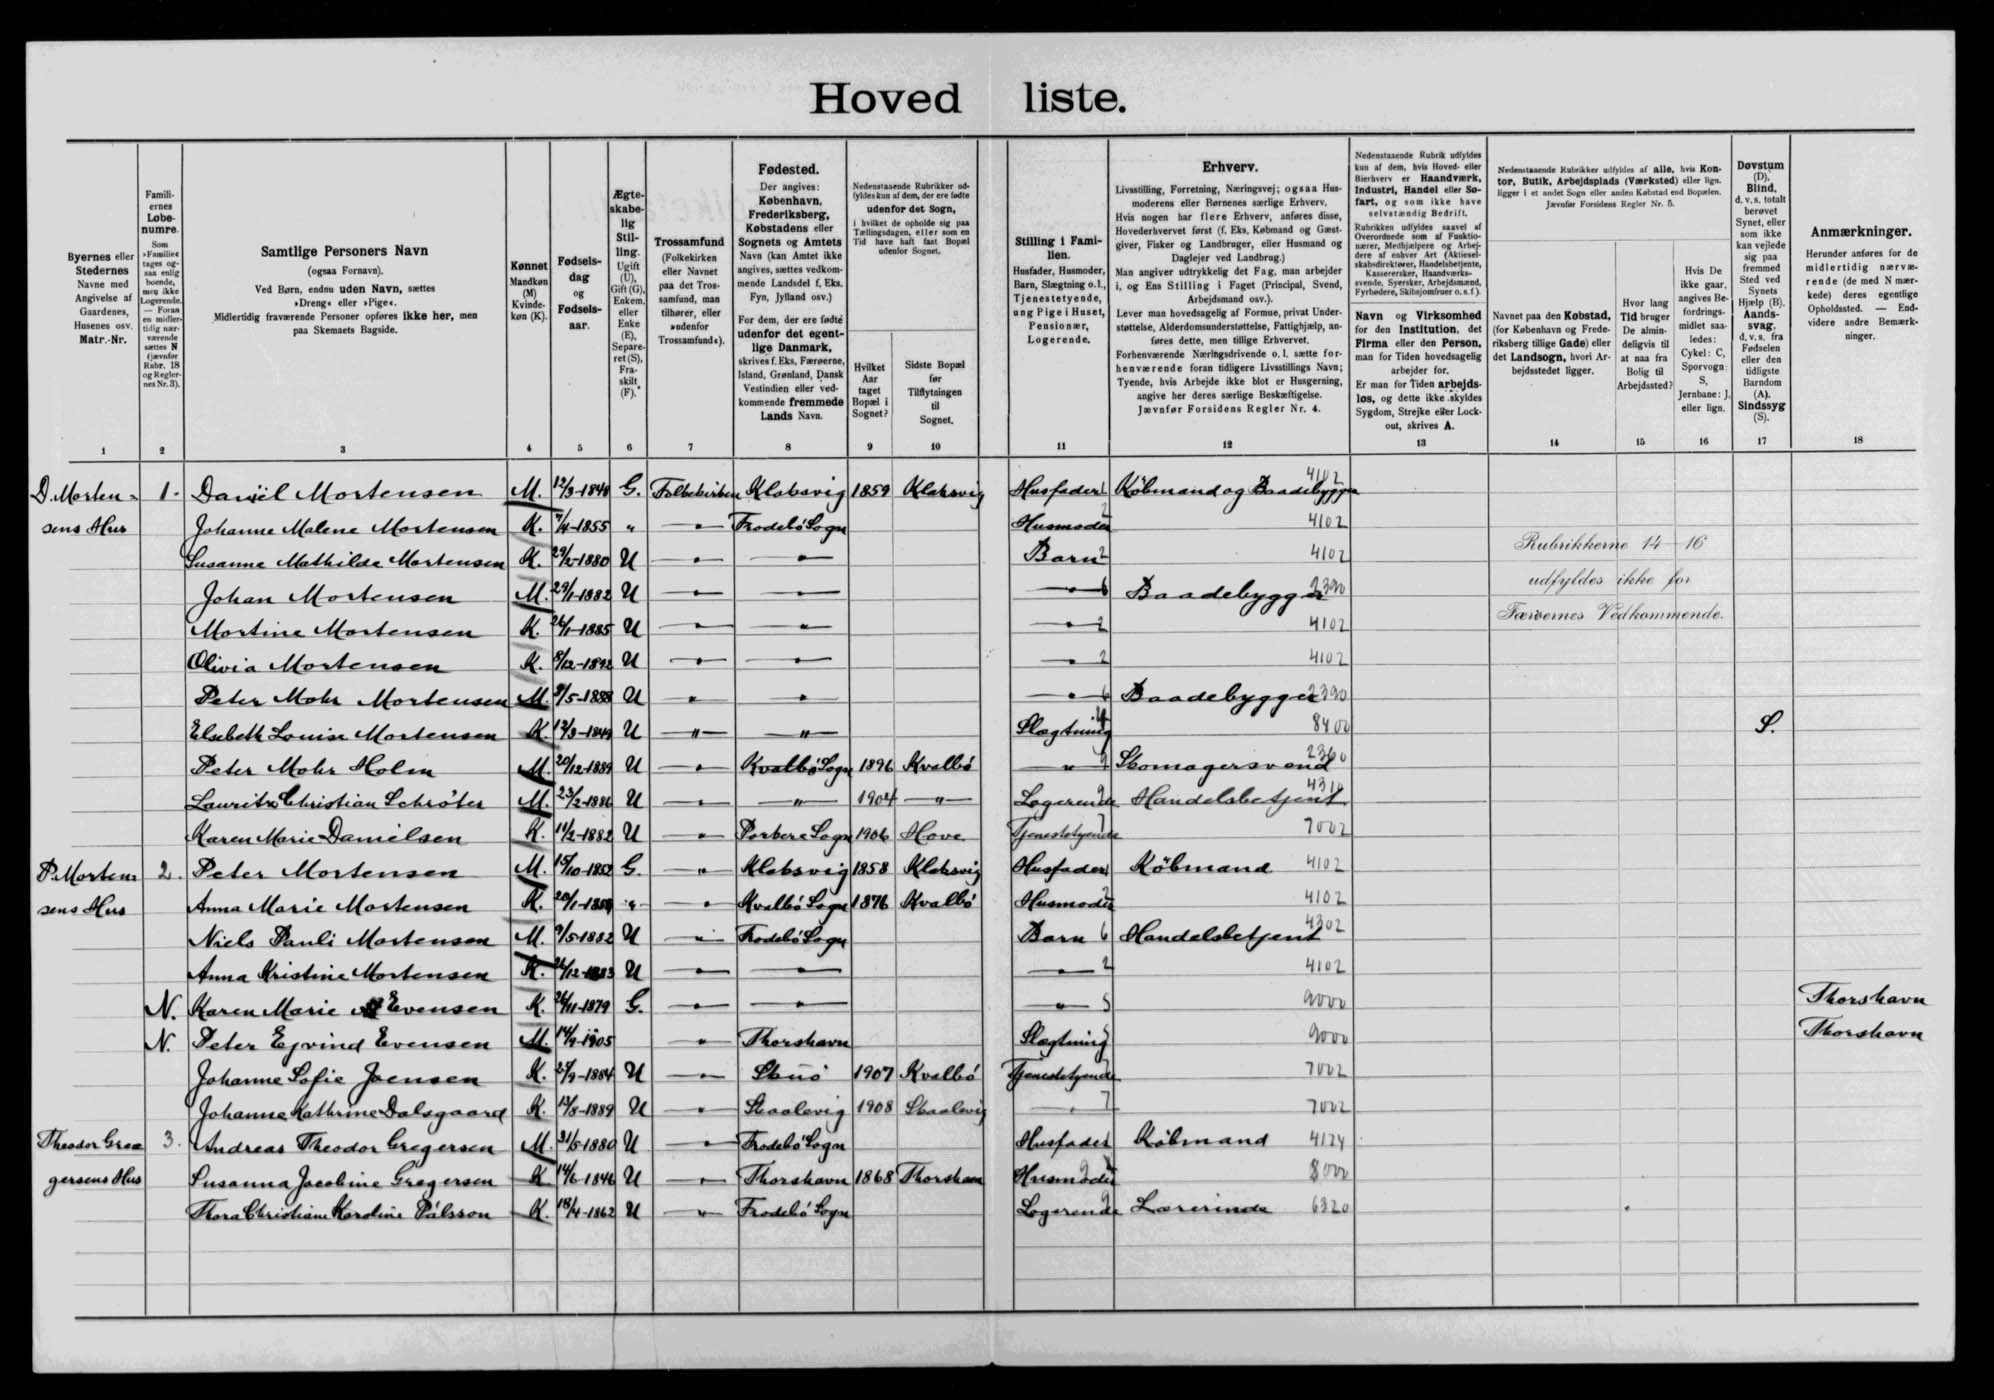 Hovedliste.
Byernes eller Stedernes Navne med Angivelse af Gaardenes, Husenes osv. Matr.-Nr.
Familiernes Løbenumre.
Som »Familie« tages ogsaa enlig boende, men ikke Logerende. — Foran en midlertidig nærværende sættes N (jævnfør Rubr. 18 og Regler nes Nr. 3).
Samtlige Personers Navn
(ogsaa Fornavn).
Ved Børn, endnu uden Navn, sættes
»Dreng« eller »Pige«.
Midlertidig fraværende Personer opføres ikke her, men
paa Skemaets Bagside.
Kønnet
Mandkøn (M)
Kvindekøn (K).
Fødselsdag og Fødselsaar.
Ægteskabelig Stilling.
Ugift (U), Gift (G), Enkem. eller Enke (E), Separeret (S), Fraskilt (F).
Trossamfund
(Folkekirken eller Navnet paa det Trossamfund, man tilhører, eller »udenfor Trossamfund«).
Fødested.
Der angives:
København, Frederiksberg, Købstadens eller Sognets og Amtets Navn (kan Amtet ikke angives, sættes vedkommende Landsdel f. Eks. Fyn, Jylland osv.)
For dem, der ere fødte udenfor det egentlige Danmark, skrives f. Eks. Færøerne, Island, Grønland, Dansk Vestindien eller vedkommende fremmede Lands Navn.
Nedenstaaende Rubrikker udfyldes kun af dem, der ere fødte udenfor det Sogn, i hvilket de opholde sig paa Tællingsdagen, eller som en Tid have haft fast Bopæl udenfor Sognet.
Hvilket Aar taget Bopæl i Sognet?
Sidste Bopæl før Tilflytningen til Sognet.
Stilling i Familien.
Husfader, Husmoder, Barn, Slægtning o. l., Tjenestetyende, ung Pige i Huset, Pensionær, Logerende.
Erhverv.
Livsstilling, Forretning, Næringsvej; ogsaa Husmoderens eller Børnenes særlige Erhverv.
Hvis nogen har flere Erhverv, anføres disse, Hovederhvervet først (f. Eks. Købmand og Gæstgiver, Fisker og Landbruger, eller Husmand og Daglejer ved Landbrug.)
Man angiver udtrykkelig det Fag, man arbejder i, og Ens Stilling i Faget (Principal, Svend, Arbejdsmand osv.).
Lever man hovedsagelig af Formue, privat Understøttelse, Alderdomsunderstøttelse, Fattighjælp, anføres dette, men tillige Erhvervet.
Forhenværende Næringsdrivende o. l. sætte forhenværende foran tidligere Livsstillings Navn; Tyende, hvis Arbejde ikke blot er Husgerning, angive her deres særlige Beskæftigelse.
Jævnfør Forsidens Regler Nr. 4.
Nedenstaaende Rubrik udfyldes kun af dem, hvis Hoved- eller Bierhverv er Haandværk, Industri, Handel eller Søfart, og som ikke have selvstændig Bedrift.
Rubrikken udfyldes saavel af Overordnede som af Funktionærer, Medhjælpere og Arbejdere af enhver Art (Aktieselskabsdirektører, Handelsbetjente, Kasserersker, Haandværkssvende, Syersker, Arbejdsmænd, Fyrbødere, Skibsjomfruer o. s. f.).
Navn og Virksomhed for den Institution, det Firma eller den Person, man for Tiden hovedsagelig arbejder for.
Er man for Tiden arbejdsløs, og dette ikke skyldes Sygdom, Strejke eller Lockout, skrives A.
Nedenstaaende Rubrikker udfyldes af alle, hvis Kontor, Butik, Arbejdsplads (Værksted) eller lign. ligger i et andet Sogn eller anden Købstad end Bopælen.
Jævnfør Forsidens Regler Nr. 5.
Navnet paa den Købstad, (for København og Frederiksberg tillige Gade) eller det Landsogn, hvori Arbejdsstedet ligger.
Hvor lang Tid bruger De almindeligvis til at naa fra Bolig til Arbejdssted?
Hvis De ikke gaar, angives Befordringsmidlet saaledes: Cykel: C, Sporvogn: S, Jernbane: J, eller lign.
Døvstum (D), Blind, d. v. s. totalt berøvet Synet, eller som ikke kan vejlede sig paa fremmed Sted ved Synets Hjælp (B), Aandssvag, d. v. s. fra Fødselen eller den tidligste Barndom (A). Sindssyg (S).
Anmærkninger.
Herunder anføres for de midlertidig nærværende (de med N mærkede) deres egentlige Opholdssted. — Endvidere andre Bemærkninger.
1 2 3 4 5 6 7 8 9 10 11 12 13 14 15 16 17 18
D. Morten- 1. Daniel Mortensen M. 12/3-1840 G. Folkekirken Klaksvig 1859 Klaksvig Husfader 1 Købmand og Baadebygger 4102
sens Hus Johanne Malene Mortensen K. 7/4-1855 " " Frodebö Sogn Husmoder 2 4102
Susanne Mathilde Mortensen K. 29/2-1880 U " " Barn 2 4102
Rubrikkerne 14-16
Johan Mortensen M. 29/1-1882 U " " " 6 Baadebygger 2390
udfyldes ikke for
Mortine Mortensen K. 26/1-1885 U " " " 2 4102
Færøernes Vedkommende.
Olivia Mortensen K. 8/12-1892 U " " " 2 4102
Peter Mohr Mortensen M. 9/5-1888 U " " " 6 Baadebygger 2390
Elsebeth Louise Mortensen K. 12/3-1849 U " " Slægtning 4 8400 S.
Peter Mohr Holm M. 20/12-1889 U " Kvalbö Sogn 1896 Kvalbö " 9 Skomagersvend 2360
Lauritz Christian Schröter M. 23/2-1886 U " " 1904 " Logerende 9 Handelsbetjent 4310
Karen Marie Danielsen K. 14/2-1882 U " Porkere Sogn 1906 Hove Tjenestetyende 7 7002
P. Morten- 2. Peter Mortensen M. 15/10-1852 G. " Klaksvig 1858 Klaksvig Husfader 1 Købmand 4102
sens Hus Anna Marie Mortensen K. 20/1-1850 " " Kvalbö Sogn 1876 Kvalbö Husmoder 2 4102
Niels Pauli Mortensen M. 9/5-1882 U " Frodebö Sogn Barn 6 Handelsbetjent 4302
Anna Kristine Mortensen K. 26/12-1883 U " " " 2 4102
N. Karen Marie Evensen K. 26/11-1879 G. " " " 5 9000 Thorshavn
N. Peter Ejvind Evensen M. 14/9-1905 " Thorshavn Slægtning 5 9000 Thorshavn
Johanne Sofie Joensen K. 27/9-1884 U " Skuö 1907 Kvalbö Tjenestetyende 7 7002
Johanne Kathrine Dalsgaard K. 13/8-1889 U " Skaalevig 1908 Skaalevig " 7 7002
Theodor Gre- 3. Andreas Theodor Gregersen M. 31/5-1880 U " Frodebö Sogn Husfader 1 Købmand 4124
gersens Hus Susanna Jacobine Gregersen K 14/6-1846 U " Thorshavn 1868 Thorshavn Husmoder 8000
Thora Christiane Karoline Pálsson K. 18/4-1862 U " Frodebö Sogn Logerende 9 Lærerinde 6320